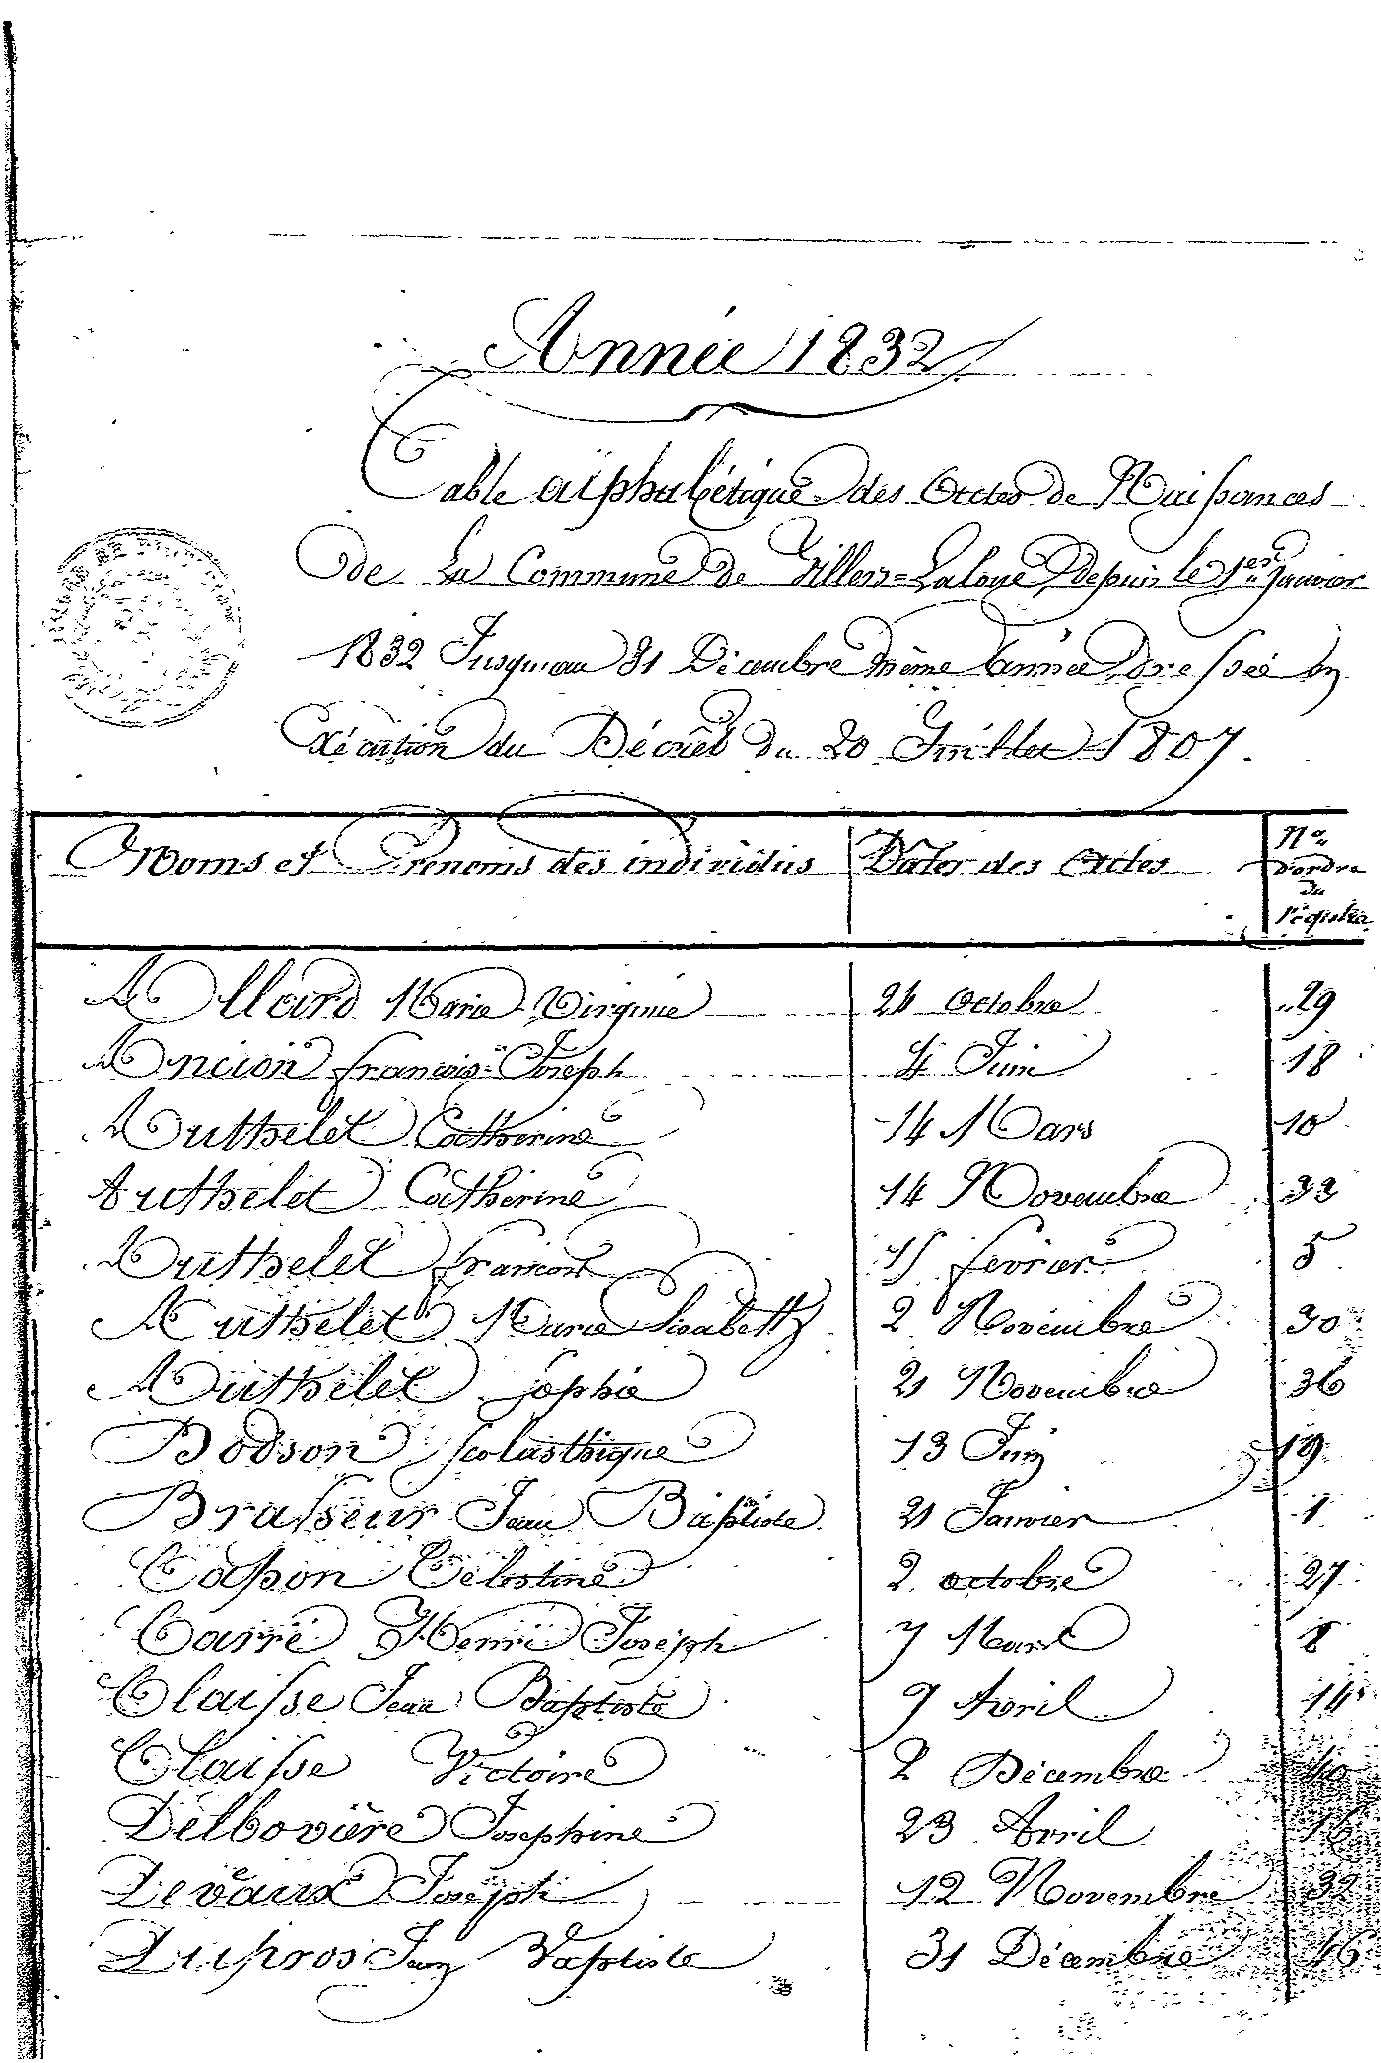 Année 1832
Table alphabétique des Actes de Naissances
de La Commune de Villers=Laloue, depuis le 1er Janvier
1832 Jusqu'au 31 Décembre même année, dressée en
Exécution du Décret du 20 Juillet 1807.
Noms et Prénoms des individus Dates des Actes N° d'ordre du registre
Allard Marie Virginie 24 Octobre 29
Ancion François-Joseph 4 Juin 18
Authelet Catherine 14 Mars 10
Authelet Catherine 14 Novembre 33
Authelet François 15 février 5
Authelet Marie Elisabeth 2 Novembre 30
Authelet Sophie 21 Novembre 36
Bodson Scolasthique 13 Juin 19
Brasseur Jean Baptiste 21 Janvier 1
Capon Célestine 2 octobre 27
Carré Henri Joseph 7 Mars 8
Claisse Jean Baptiste 9 Avril 14
Claisse Victoire 2 Décembre 40
Delbovière Josephine 23 Avril 16
Devaux Joseph 12 Novembre 32
Dupros Jean Baptiste 31 Décembre 46